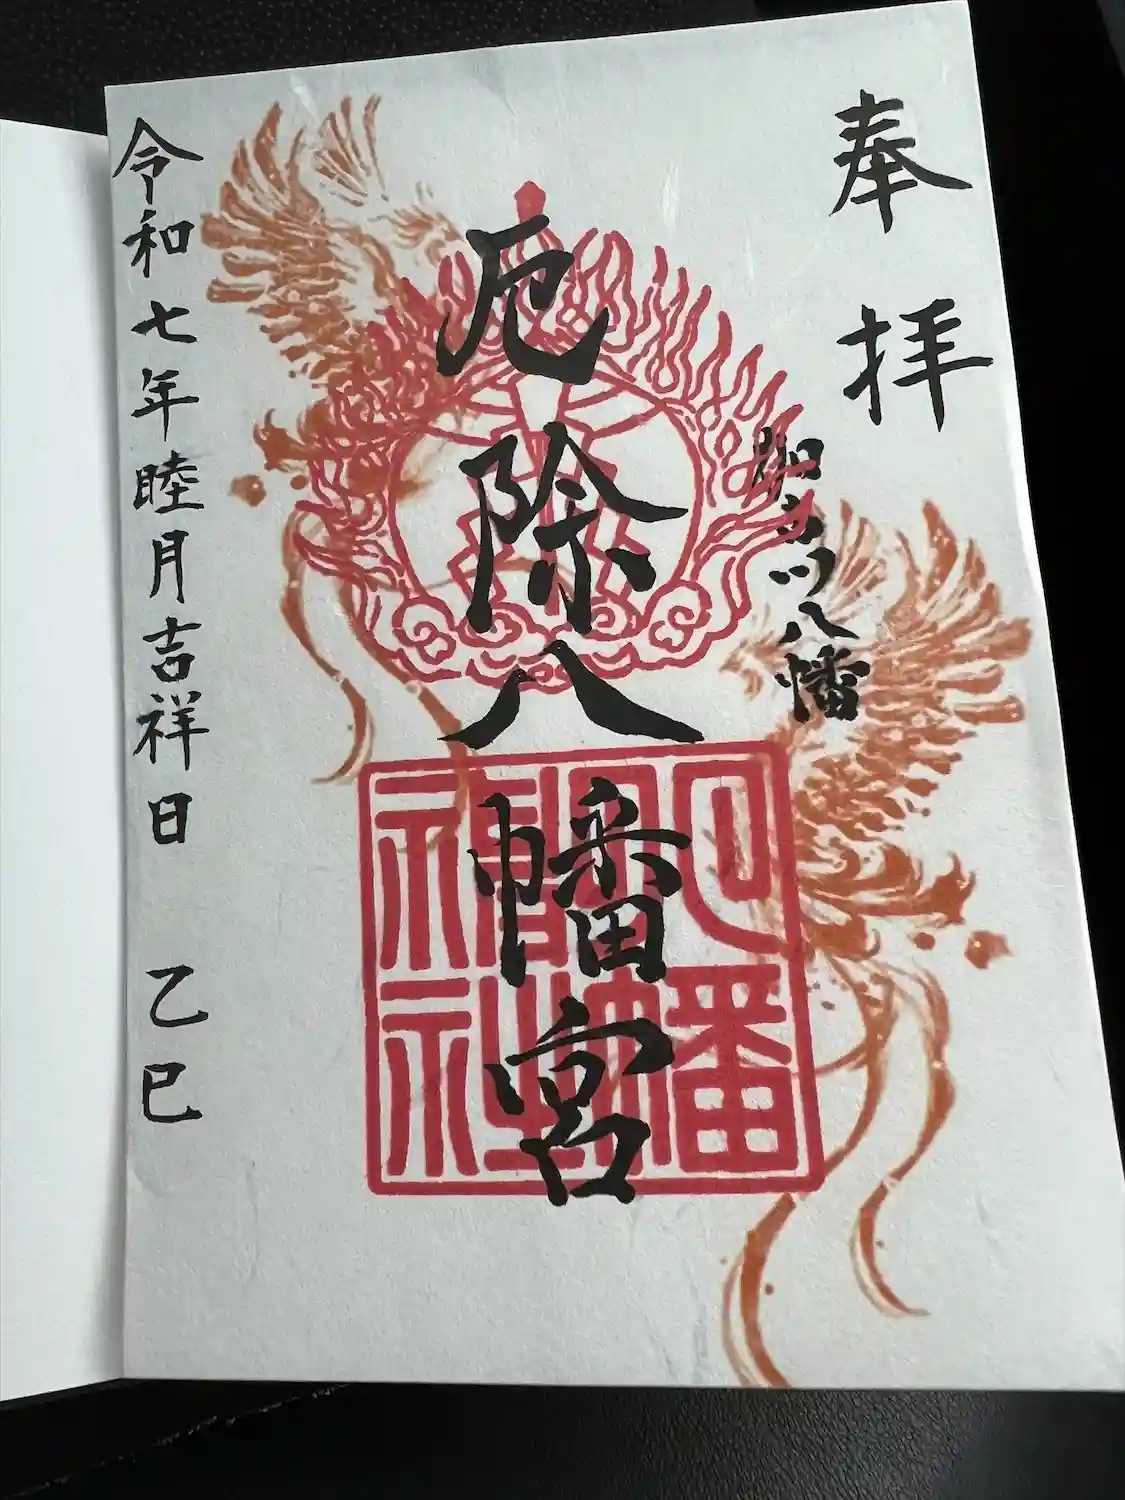 奉拝
細江川八幡
厄除八幡宮
八幡
神社
令和七年睦月吉祥日 乙巳